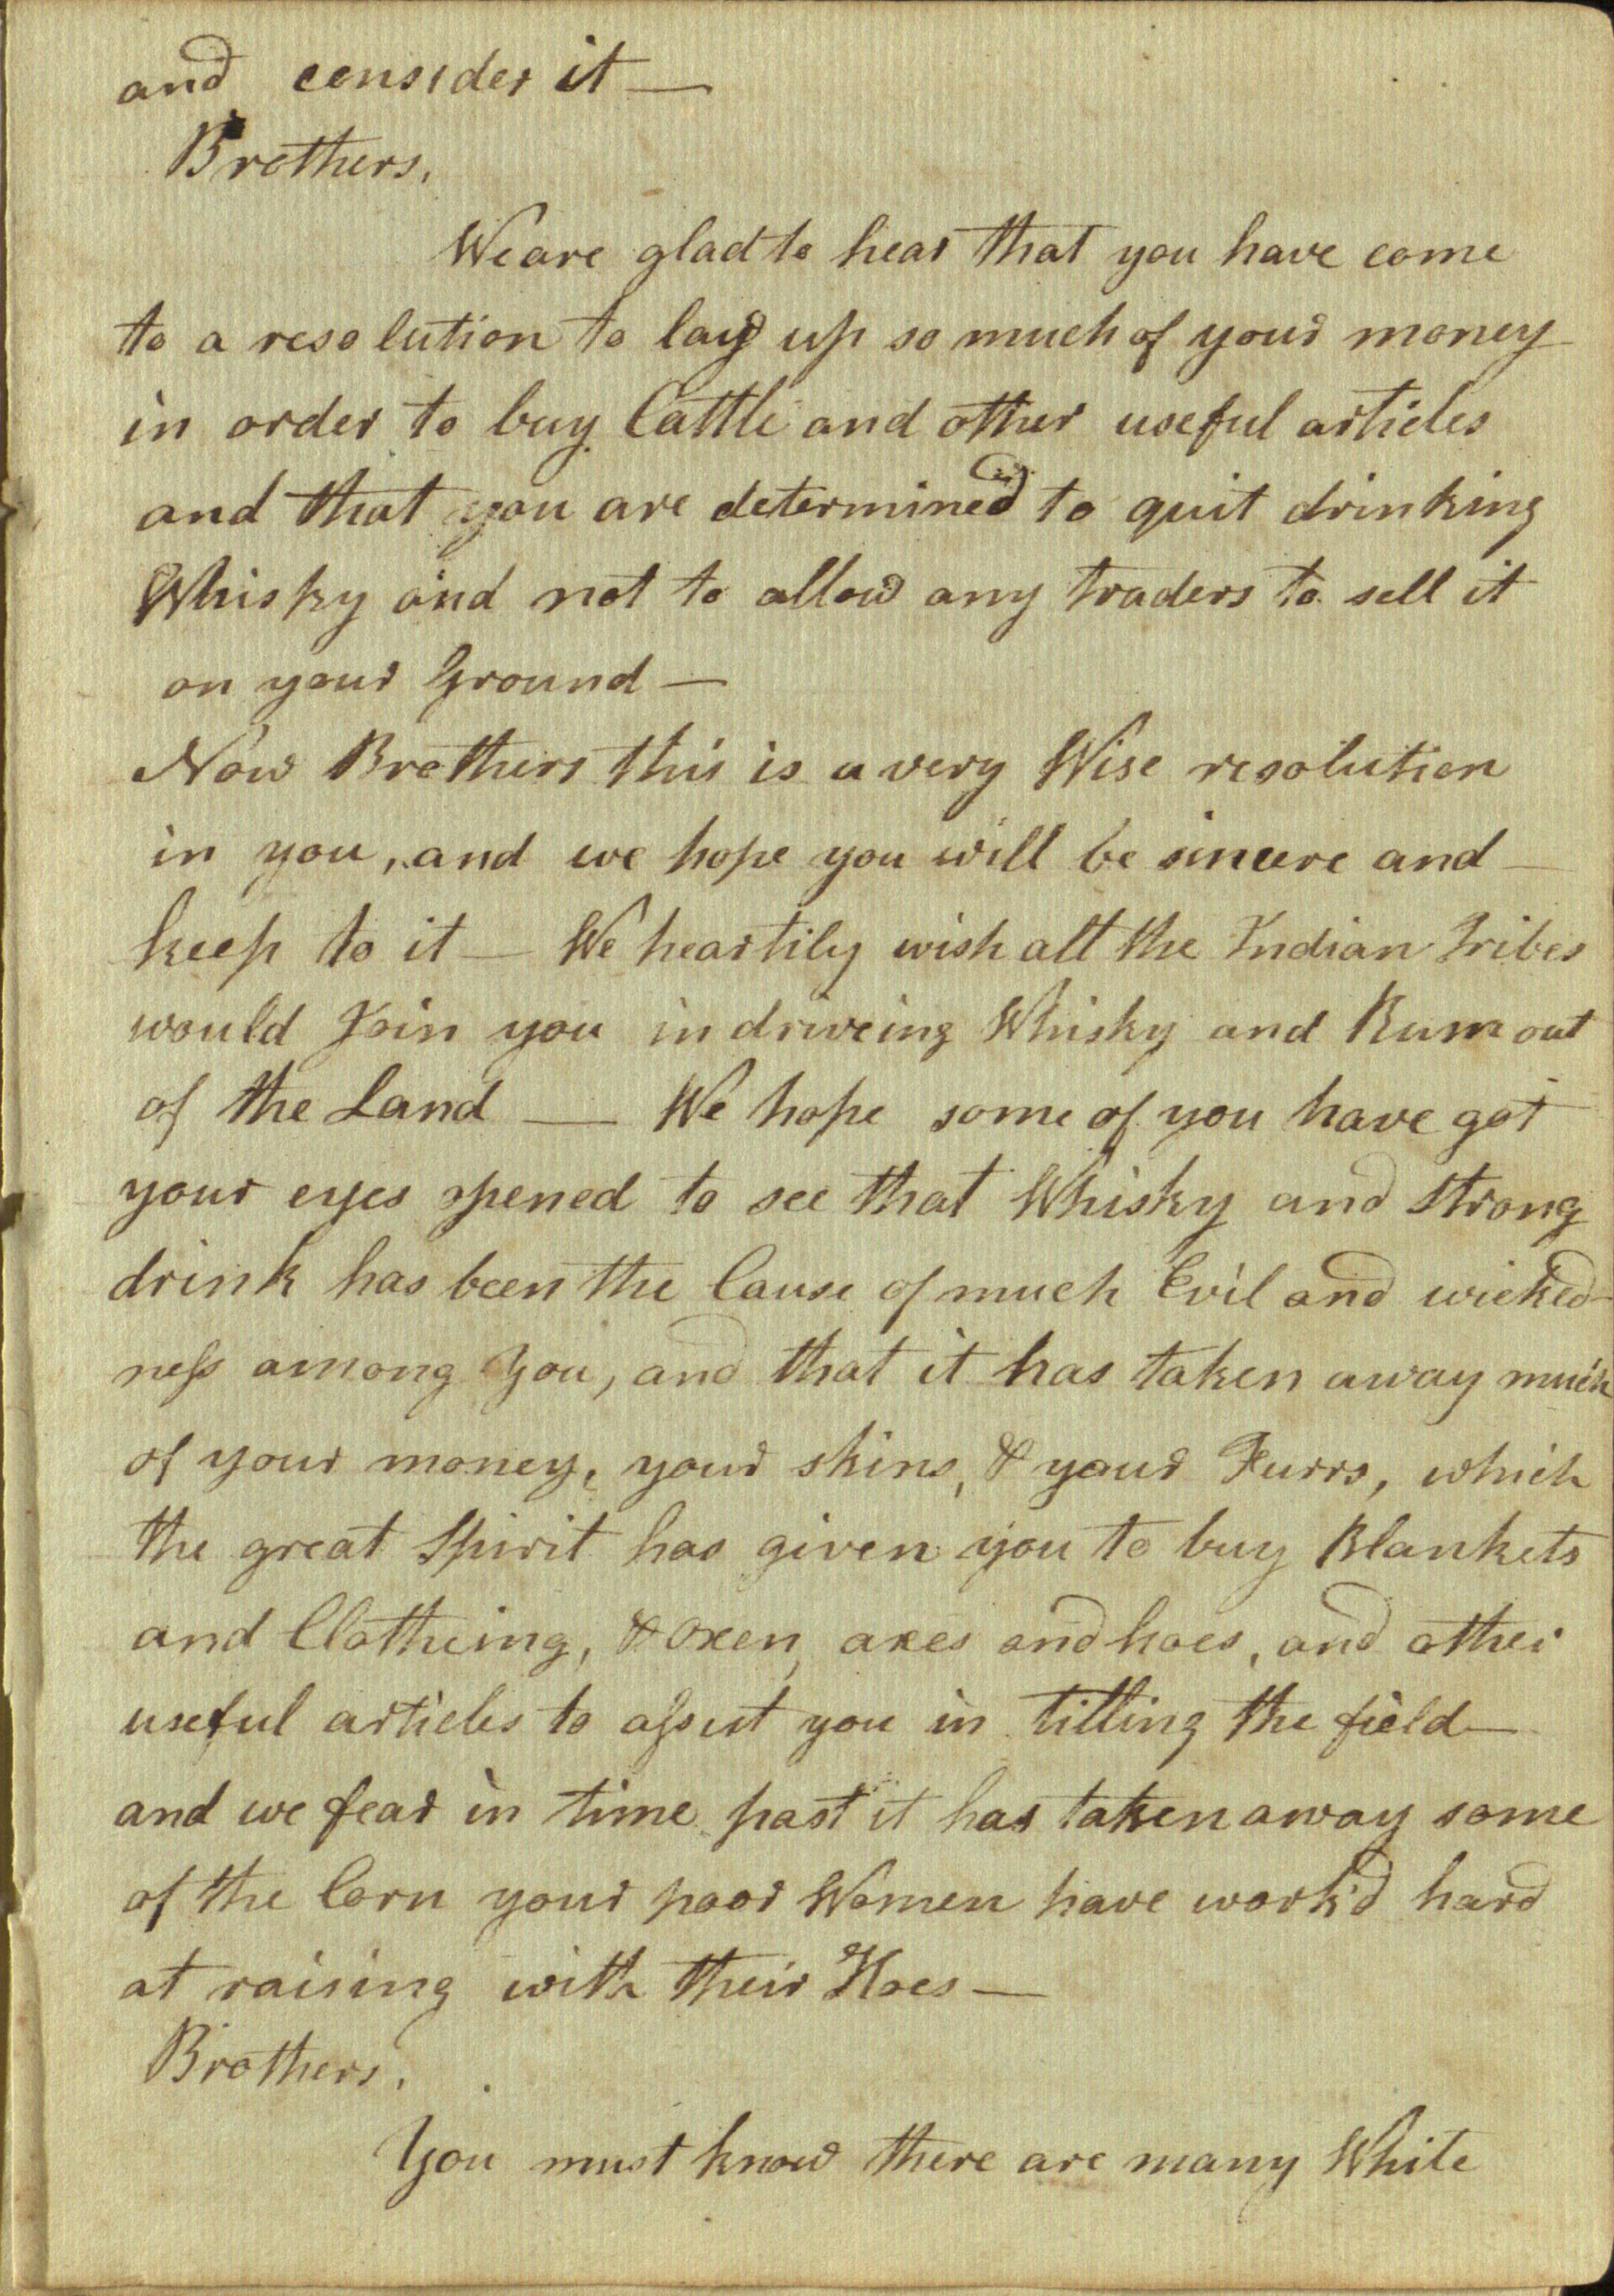 and consider it —
Brothers,
We are glad to hear that you have come
to a resolution to lay up so much of your money
in order to buy Cattle and other useful articles
and that you are determined to quit drinking
Whisky and not to allow any traders to sell it
on your Ground —
Now Brothers this is a very Wise resolution
in you, and we hope you will be sincere and —
keep to it — We heartily wish all the Indian Tribes
would Join you in driveing Whisky and Rum out
of the Land — We hope some of you have got
your eyes opened to see that Whisky and strong
drink has been the Cause of much Evil and wicked-
ness among You, and that it has taken away much
of your money, your skins, & your Furrs, which
the great Spirit has given you to buy Blankets
and Clotheing, & Oxen, axes and hoes, and other
useful articles to assist you in tilling the field —
and we fear in time past it has taken away some
of the Corn your poor Women have work'd hard
at raising with their Hoes —
Brothers,
You must know there are many White